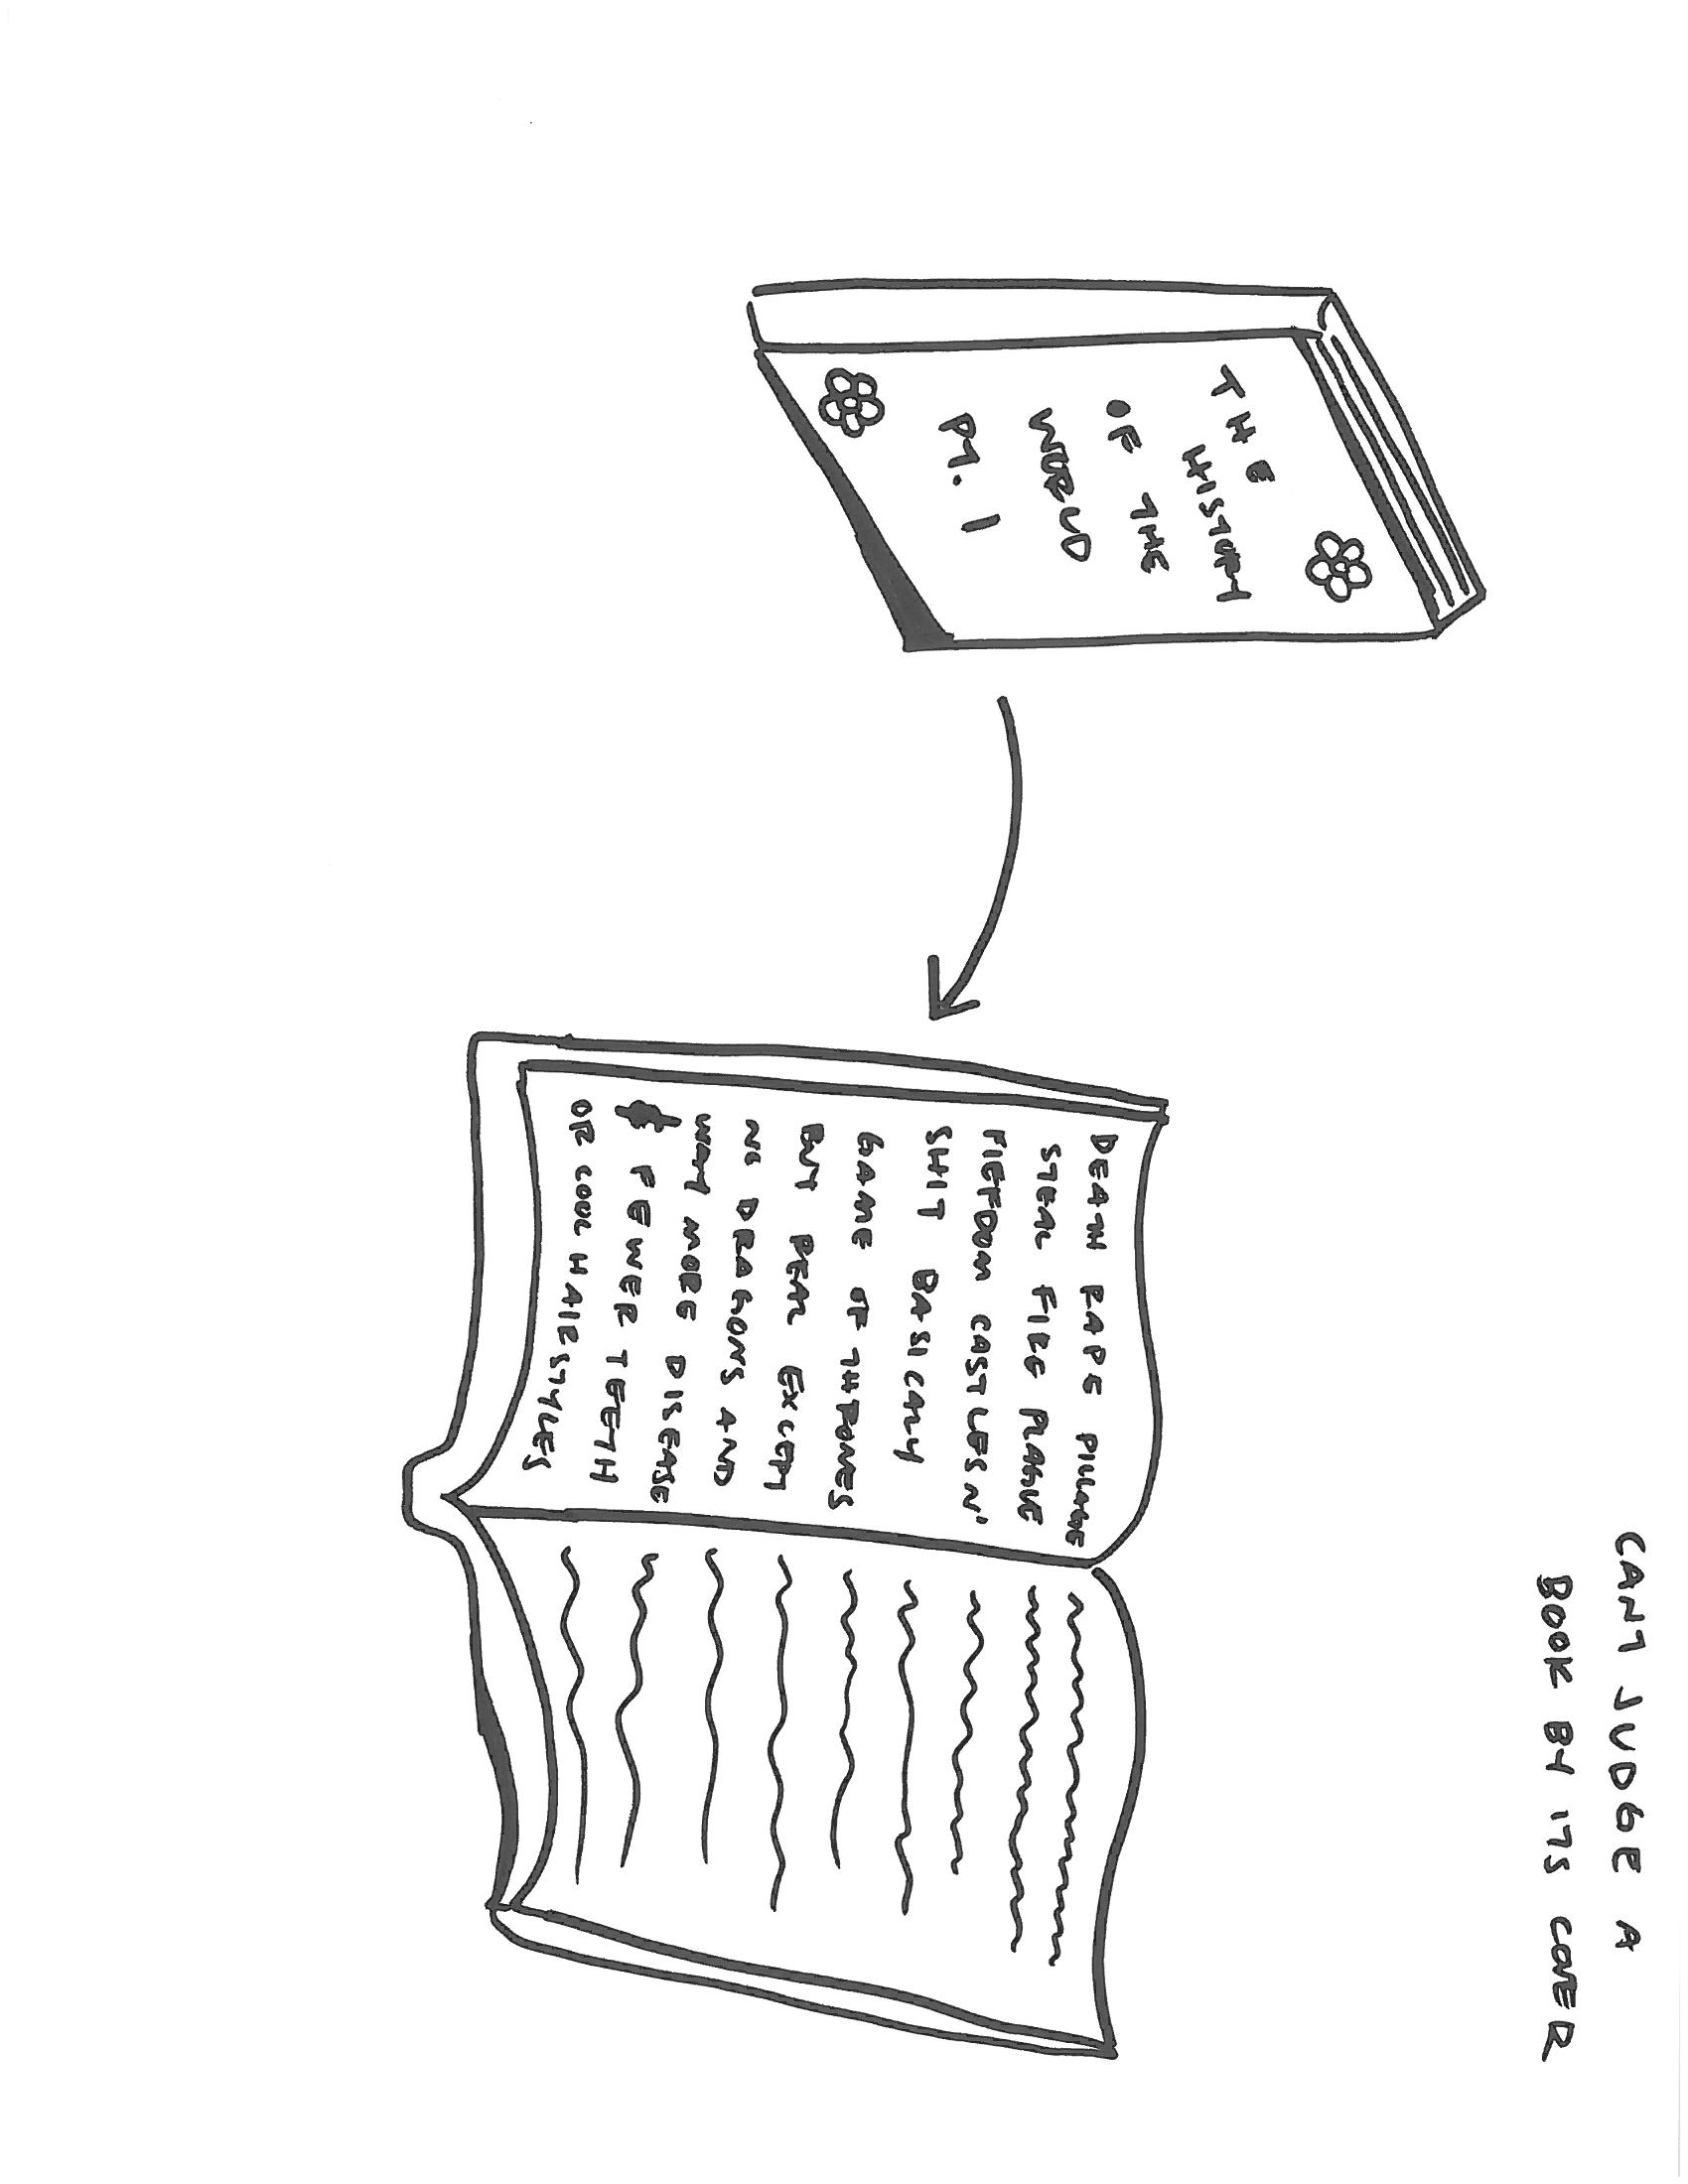 CANT JUDGE A
BOOK BY ITS COVER
THE
HISTORY
OF THE
WORLD
PT. 1
DEATH RAPE PILLAGE
STEAL FIRE PLAGUE
FIEFDOM CASTLES N'
SHIT BASICALLY
GAME OF THRONES
BUT REAL EXCEPT
NO DRAGONS AND
WAY MORE DISEASE
& FEWER TEETH
OR COOL HAIRSTYLES